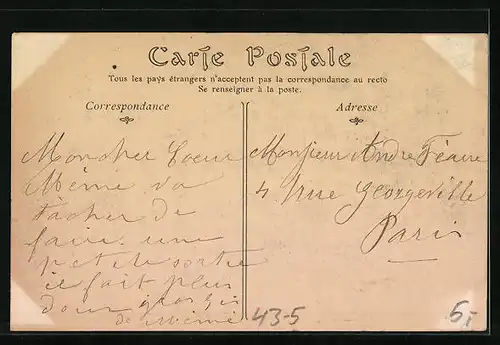 Carte Postale
Tous les pays étrangers n'acceptent pas la correspondance au recto
Se renseigner à la poste.
Correspondance
Mon cher Coeur
Mémé va
tacher de
faire une
petite sortie
il fait plus
doux gros bis
de Mémé
Adresse
Monsieur Andre
4 rue Georgeville
Paris
43-5